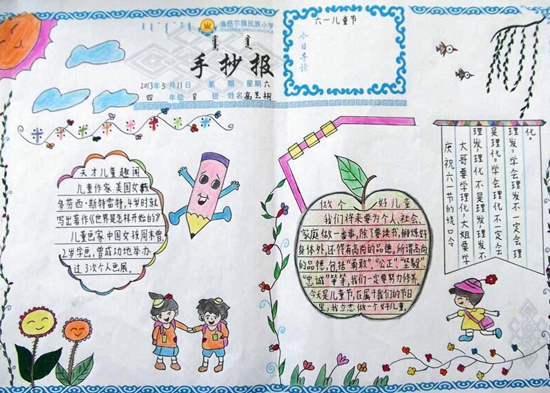 准格尔旗民族小学
手抄报
2013年5月11日 第 期 星期六
四 年级 8 班 姓名
六一儿童节
今日导读
天才儿童趣闻
儿童作家美国女孩
多萝西·斯特雷特,4岁时就
写出著作《世界是怎样开始的》
儿童画家中国女孩周末曾,
2岁学画,曾成功地举办
过3次个人画展。
做个好儿童
我们将来要为个人、社会、
家庭做一番事,除了要读书,锻炼好
身体外,还得有高尚的品德,所谓高尚
的品德,包括“勇敢”“公正”“坚毅”
“忠诚”等等,我们一定要努力修养,
今天是儿童节,在属于我们的节日
里,我立志做一个好儿童。
庆祝六一节的绕口令
大哥要学理化,大姐要学
理发,理化不是理发,理发不
是理化。学会理化不一定会
理发,学会理发不一定会理
化。